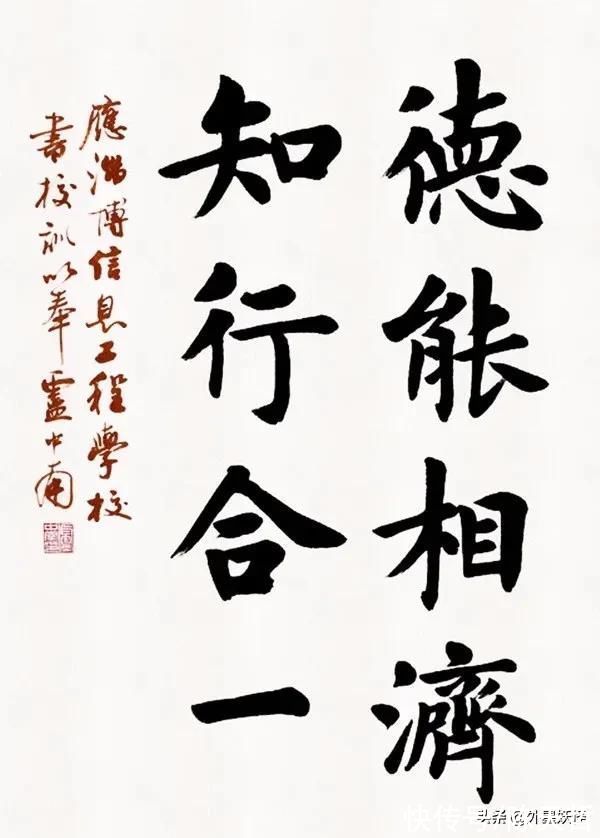 德能相濟
知行合一
應淄博信息工程學校
書校訓以奉 盧中南
头条@外星妖怪